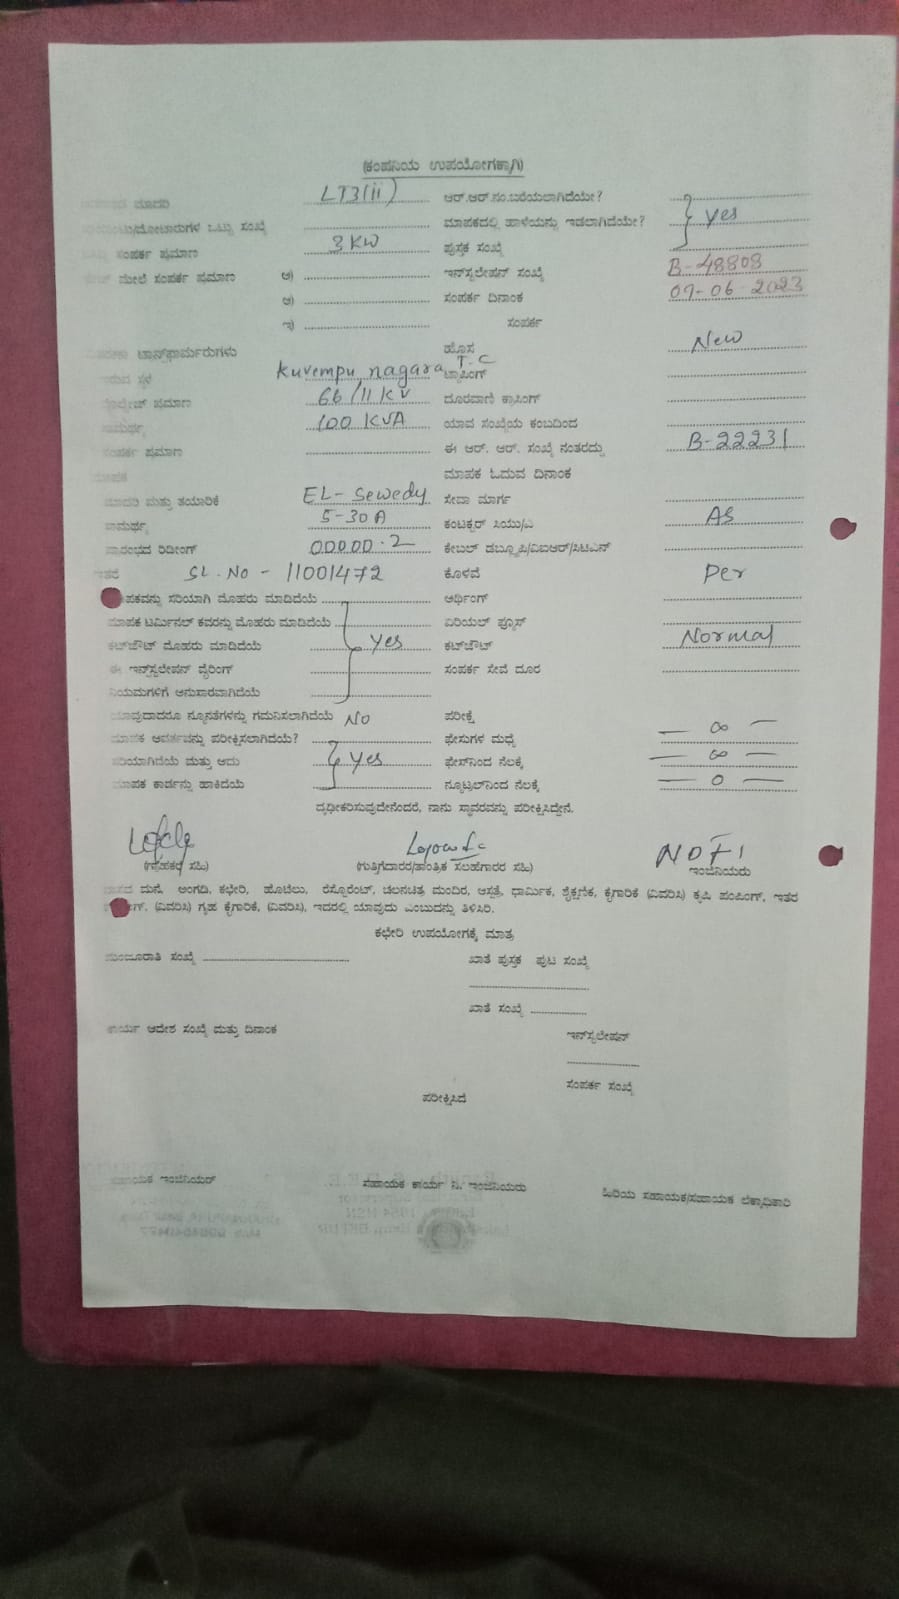 (ಕಂಪನಿಯ ಉಪಯೋಗಕ್ಕಾಗಿ)
ಮಾದರಿ LT3(ii) ಆರ್.ಆರ್.ನಂ.ಬರೆಯಲಾಗಿದೆಯೇ?
ಒಟ್ಟು ಸಂಖ್ಯೆ ಮಾಪಕದಲ್ಲಿ ಹಾಳೆಯನ್ನು ಇಡಲಾಗಿದೆಯೇ? yes
ಸಂಪರ್ಕ ಪ್ರಮಾಣ 3 KW ಪುಸ್ತಕ ಸಂಖ್ಯೆ
ಮೇಲೆ ಸಂಪರ್ಕ ಪ್ರಮಾಣ ಅ) ಇನ್‌ಸ್ಟಲೇಷನ್ ಸಂಖ್ಯೆ B-48808
ಆ) ಸಂಪರ್ಕ ದಿನಾಂಕ 07-06-2023
ಇ) ಸಂಪರ್ಕ
ಟ್ರಾನ್ಸ್‌ಫಾರ್ಮರುಗಳು ಹೊಸ New
ಸ್ಥಳ Kuvempu nagara T.C ಟ್ಯಾಪಿಂಗ್
ಪ್ರಮಾಣ 66/11 KV ದೂರವಾಣಿ ಕ್ರಾಸಿಂಗ್
100 KVA ಯಾವ ಸಂಖ್ಯೆಯ ಕಂಬದಿಂದ
ಸಂಪರ್ಕ ಪ್ರಮಾಣ ಈ ಆರ್. ಆರ್. ಸಂಖ್ಯೆ ನಂತರದ್ದು B-22231
ಮಾಪಕ ಮಾಪಕ ಓದುವ ದಿನಾಂಕ
ಮಾದರಿ ಮತ್ತು ತಯಾರಿಕೆ EL-Sewedy ಸೇವಾ ಮಾರ್ಗ
ಸಾಮರ್ಥ್ಯ 5-30A ಕಂಟಕ್ಟರ್ ಸಿಯು/ಎ AS
ಪ್ರಾರಂಭದ ರಿಡೀಂಗ್ 00000.2 ಕೇಬಲ್ ಡಬ್ಲ್ಯೂಪಿ/ವಿಐಆರ್/ಸಿಟಿಎನ್
ಇತರೆ SL.No - 11001472 ಕೊಳವೆ Per
ಮಾಪಕವನ್ನು ಸರಿಯಾಗಿ ಮೊಹರು ಮಾಡಿದೆಯೆ ಅರ್ಥಿಂಗ್
ಮಾಪಕ ಟರ್ಮಿನಲ್ ಕವರನ್ನು ಮೊಹರು ಮಾಡಿದೆಯೆ ಏರಿಯಲ್ ಫ್ಯೂಸ್
ಕಟ್‌ಔಟ್ ಮೊಹರು ಮಾಡಿದೆಯೆ yes ಕಟ್‌ಔಟ್ Normal
ಈ ಇನ್‌ಸ್ಟಲೇಷನ್ ವೈರಿಂಗ್ ಸಂಪರ್ಕ ಸೇವೆ ದೂರ
ನಿಯಮಗಳಿಗೆ ಅನುಸಾರವಾಗಿದೆಯೆ
ಯಾವುದಾದರೂ ನ್ಯೂನತೆಗಳನ್ನು ಗಮನಿಸಲಾಗಿದೆಯೆ No ಪರೀಕ್ಷೆ
ಮಾಪಕ ಆವರ್ತವನ್ನು ಪರೀಕ್ಷಿಸಲಾಗಿದೆಯೆ? ಫೇಸುಗಳ ಮಧ್ಯೆ — ∞ —
ಸರಿಯಾಗಿದೆಯೆ ಮತ್ತು ಅದು yes ಫೇಸ್‌ನಿಂದ ನೆಲಕ್ಕೆ — ∞ —
ಮಾಪಕ ಕಾರ್ಡನ್ನು ಹಾಕಿದೆಯೆ ನ್ಯೂಟ್ರಲ್‌ನಿಂದ ನೆಲಕ್ಕೆ — 0 —
ದೃಢೀಕರಿಸುವುದೇನೆಂದರೆ, ನಾನು ಸ್ಥಾವರವನ್ನು ಪರೀಕ್ಷಿಸಿದ್ದೇನೆ.
(ಗ್ರಾಹಕರ ಸಹಿ) (ಗುತ್ತಿಗೆದಾರರ/ತಾಂತ್ರಿಕ ಸಲಹೆಗಾರರ ಸಹಿ) ಇಂಜಿನಿಯರು
ಮನೆ, ಅಂಗಡಿ, ಕಛೇರಿ, ಹೊಟೆಲು, ರೆಸ್ಟೋರೆಂಟ್, ಚಲನಚಿತ್ರ ಮಂದಿರ, ಆಸ್ಪತ್ರೆ, ಧಾರ್ಮಿಕ, ಶೈಕ್ಷಣಿಕ, ಕೈಗಾರಿಕೆ (ವಿವರಿಸಿ) ಕೃಷಿ ಪಂಪಿಂಗ್, ಇತರ
(ವಿವರಿಸಿ) ಗೃಹ ಕೈಗಾರಿಕೆ, (ವಿವರಿಸಿ), ಇದರಲ್ಲಿ ಯಾವುದು ಎಂಬುದನ್ನು ತಿಳಿಸಿರಿ.
ಕಛೇರಿ ಉಪಯೋಗಕ್ಕೆ ಮಾತ್ರ
ಮಂಜೂರಾತಿ ಸಂಖ್ಯೆ ಖಾತೆ ಪುಸ್ತಕ ಪುಟ ಸಂಖ್ಯೆ
ಖಾತೆ ಸಂಖ್ಯೆ
ಕಾರ್ಯ ಆದೇಶ ಸಂಖ್ಯೆ ಮತ್ತು ದಿನಾಂಕ ಇನ್‌ಸ್ಟಲೇಷನ್
ಸಂಪರ್ಕ ಸಂಖ್ಯೆ
ಪರೀಕ್ಷಿಸಿದೆ
ಸಹಾಯಕ ಇಂಜಿನಿಯರ್ ಸಹಾಯಕ ಕಾರ್ಯ ನಿ. ಇಂಜಿನಿಯರು ಹಿರಿಯ ಸಹಾಯಕ/ಸಹಾಯಕ ಲೆಕ್ಕಾಧಿಕಾರಿ